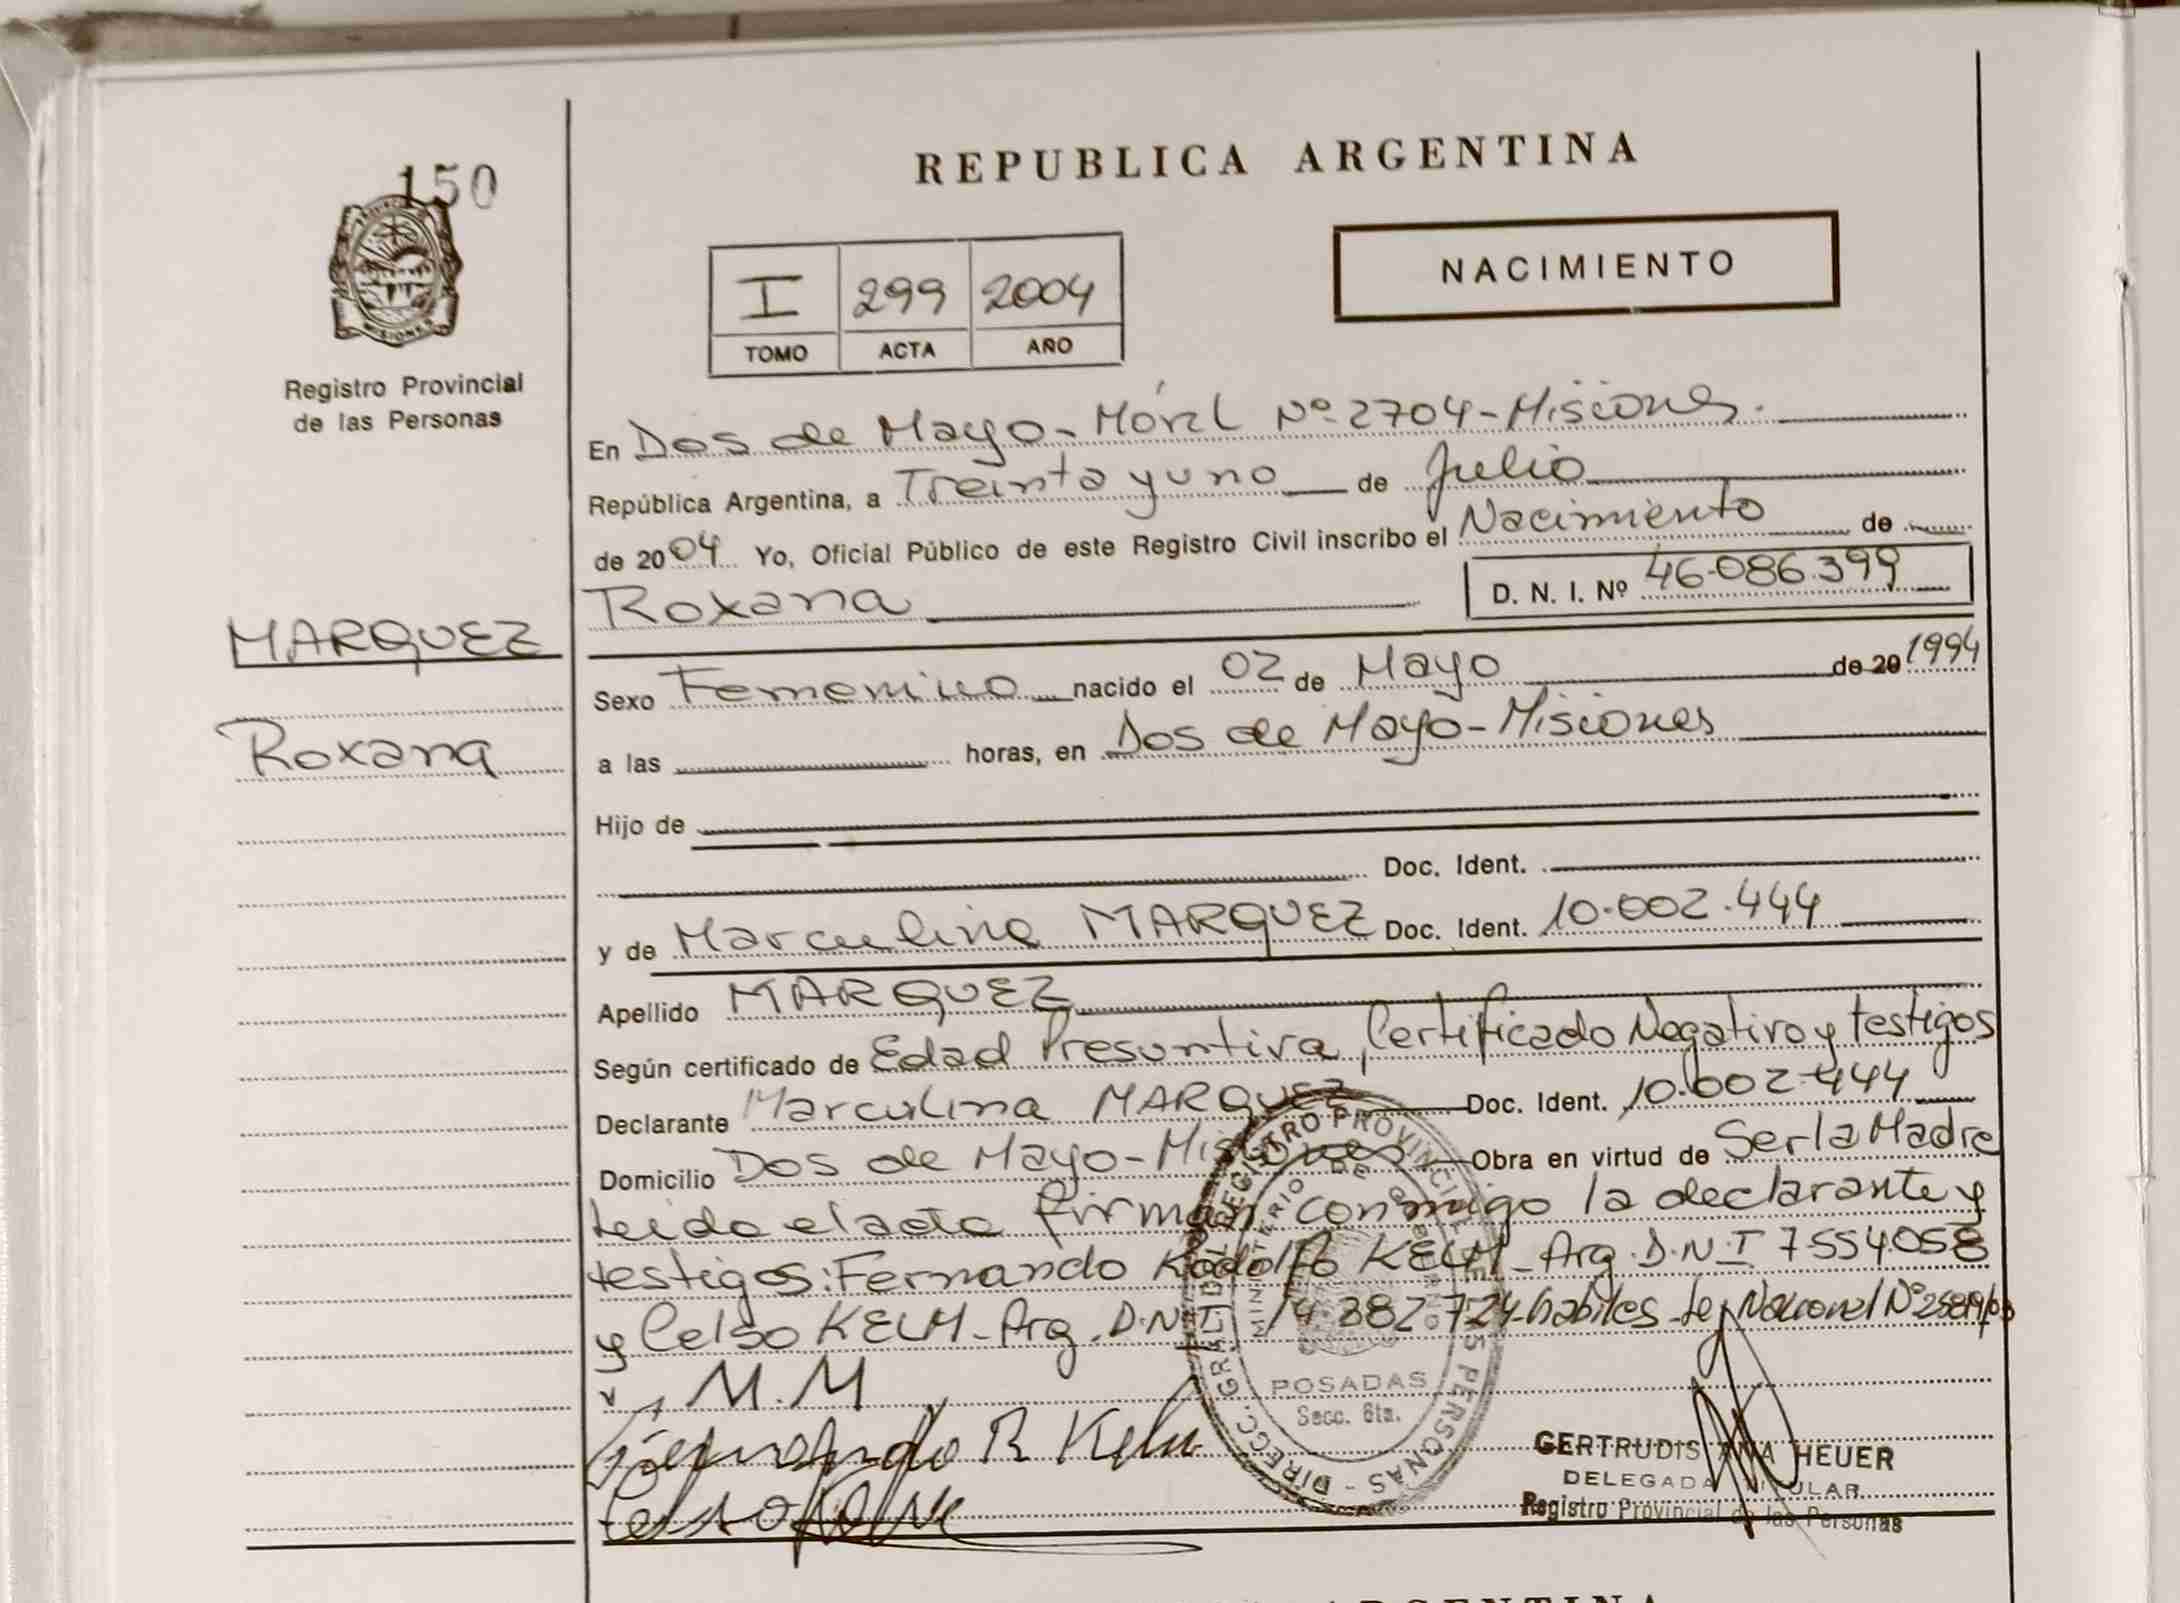 150
REPUBLICA ARGENTINA
NACIMIENTO
I 299 2004
TOMO ACTA AÑO
MISIONES
Registro Provincial
de las Personas
En Dos de Mayo - Móvil Nº 2704 - Misiones.
República Argentina, a Treinta y uno de Julio
de 2004 Yo, Oficial Público de este Registro Civil inscribo el Nacimiento de
Roxana D. N. I. Nº 46.086.399
MARQUEZ
Roxana
Sexo Femenino nacido el 02 de Mayo de 20 1994
a las horas, en Dos de Mayo - Misiones
Hijo de
Doc. Ident.
y de Marculina MARQUEZ Doc. Ident. 10.002.444
Apellido MARQUEZ
Según certificado de Edad Presuntiva, Certificado Negativo y testigos
Declarante Marculina MARQUEZ Doc. Ident. 10.002.444
Domicilio Dos de Mayo - Misiones Obra en virtud de Ser la Madre
Leido el acta firman conmigo la declarante y
testigos: Fernando Rodolfo KELM - Arg. D.N.I 7.554.058
y Celso KELM - Arg. D.N.I 14.382.724 habiles - Ley Nacional Nº 25819/03
M.M
Fernando R Kelm
Celso
DIRECC. GRAL. DEL REGISTRO PROVINCIAL DE LAS PERSONAS
MINISTERIO DE GOBIERNO
POSADAS
Secc. 6ta.
GERTRUDIS ANA HEUER
DELEGADA TITULAR
Registro Provincial de las Personas